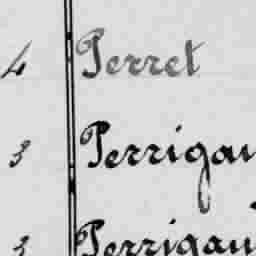 4 Perret
3 Perrigau
3 Perrigau